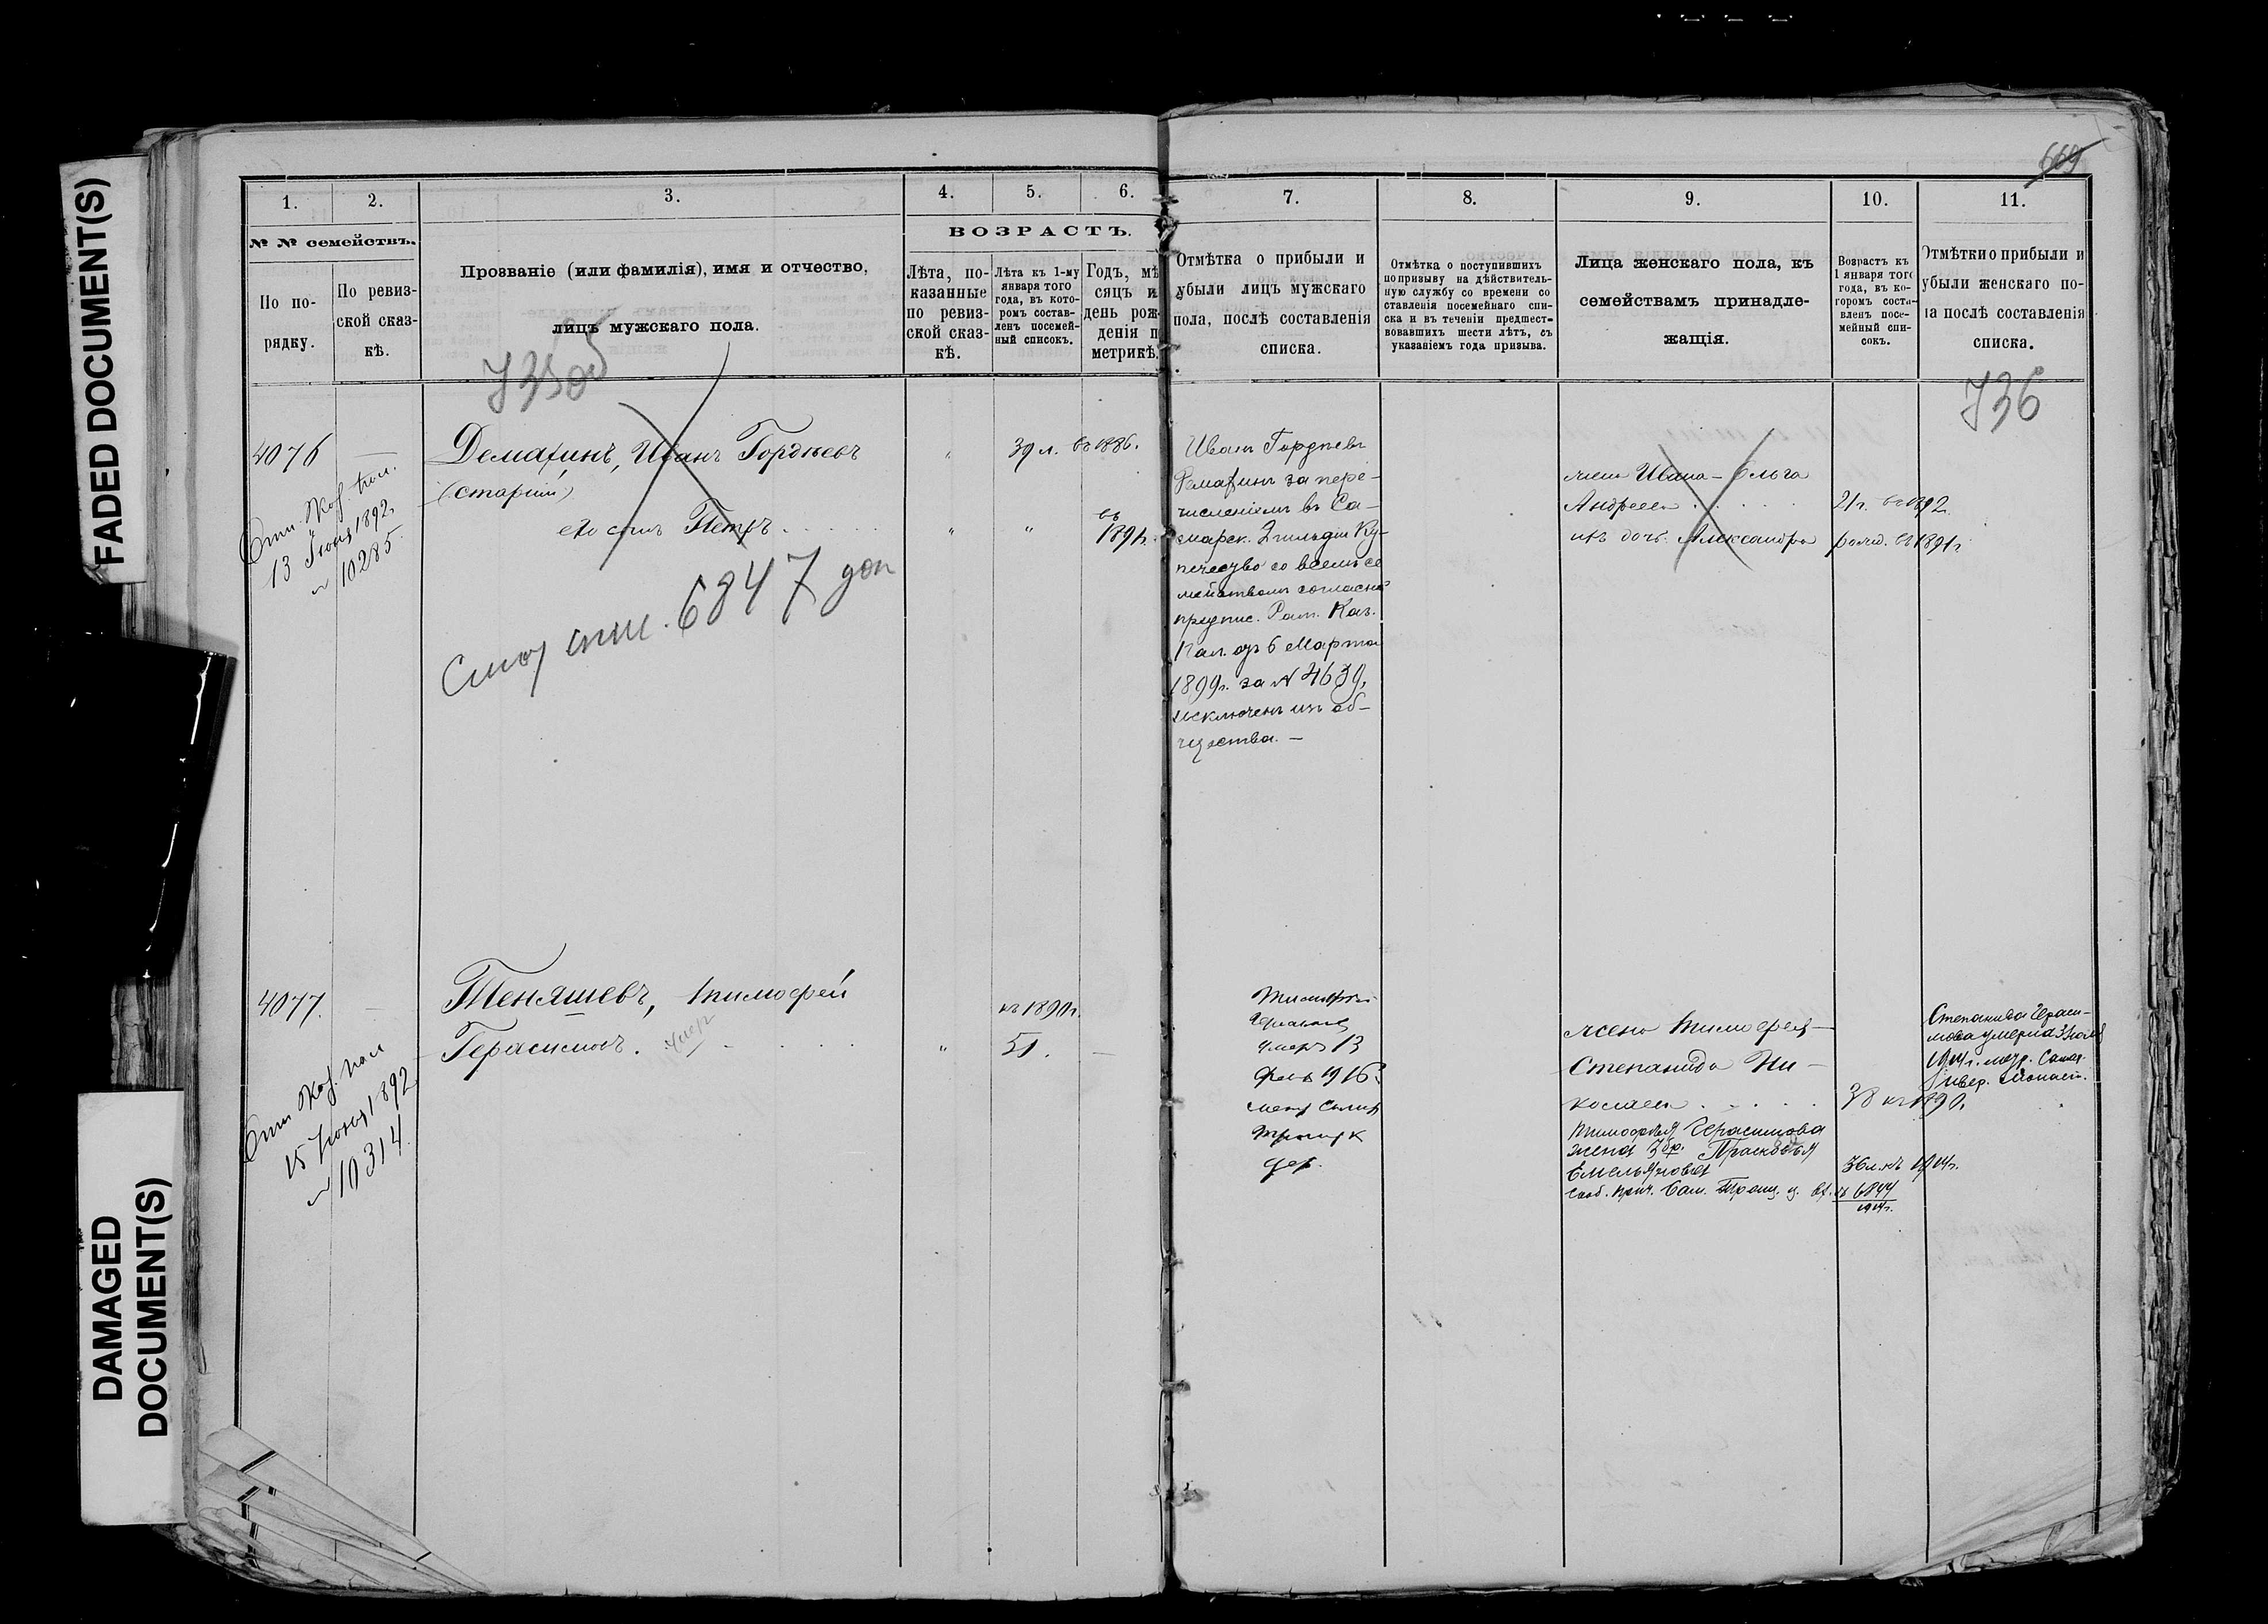 FADED DOCUMENT(S)
DAMAGED
DOCUMENT(S)
669
1.
2.
3.
4.
5.
6.
7.
8.
9.
10.
11.
№ № семействъ.
По по-
рядку.
По ревиз-
ской сказ-
кѣ.
Прозваніе (или фамилія), имя и отчество,
лицъ мужскаго пола.
ВОЗРАСТЪ.
Лѣта, по-
казанные
по ревиз-
ской сказ-
кѣ.
Лѣта къ 1-му
января того
года, въ кото-
ромъ состав-
ленъ посемей-
ный списокъ.
Годъ, мѣ
сяцъ и
день рож-
денія п
метрикѣ.
Отмѣтка о прибыли и
убыли лицъ мужскаго
пола, послѣ составленія
списка.
Отмѣтка о поступившихъ
по призыву на дѣйствитель-
ную службу со времени со
ставленія посемейнаго спи-
ска и въ теченіи предшест-
вовавшихъ шести лѣтъ, съ
указаніемъ года призыва.
Лица женскаго пола, къ
семействамъ принадле-
жащія.
Возрастъ къ
1 января того
года, въ ко-
торомъ соста-
вленъ посе-
мейный спи-
сокъ.
Отмѣтки о прибыли и
убыли женскаго по-
ла послѣ составленія
списка.
735об
736
4076
13 Іюня 1892г.
№ 10285.
Иванъ Гордѣевъ
(старшій)
его сынъ Петръ
39 л. въ 1886.
въ
1891г.
6847 доп
Иванъ Гордѣевъ
за пере-
численіемъ въ Са-
марск. 2 гильдіи Ку-
печество со всемъ се
мействомъ согласно
предпис. Каз.
Пал. отъ 6 Марта
1899г. за № 4639,
исключенъ изъ об-
щества. —
жена Ивана - Ольга
Андреева
21г. въ 1892.
ихъ дочь Александра
рожд. въ 1891г
4077.
Каз. Пал
15 Іюня 1892
№ 10314.
Теняшевъ, Тимофей
Герасимовъ.
умер
къ 1890г.
51.
Тимофей
умеръ 13
1916г.
жена Тимофея -
Степанида Ни-
колаева
38 къ 1890.
Тимофея Герасимова
жена 2 бр. Прасковья
Емельянова
36 л. къ 1914г.
сооб. прич. Сам. Троиц. ц.
№ 6844
1914г.
Степанида Гераси-
мова умерла
1904г. метр. Самар.